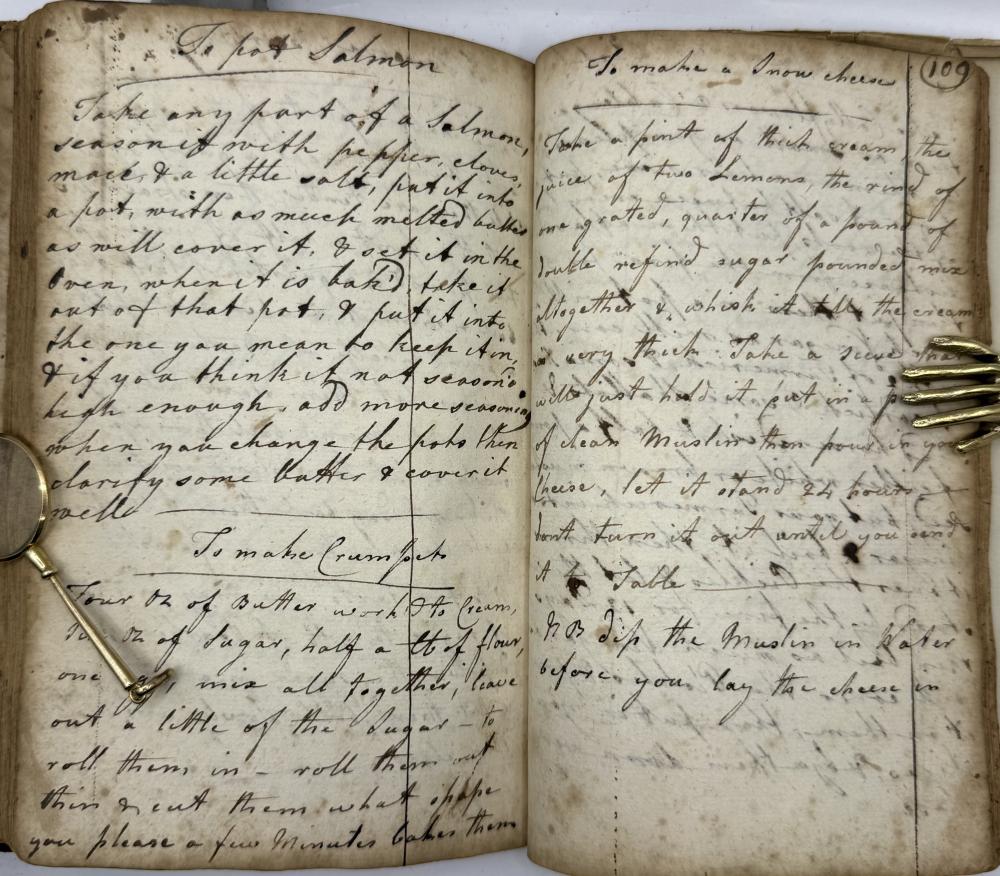 To pot Salmon
Take any part of a Salmon,
season it with pepper, cloves,
mace, & a little salt, put it into
a pot, with as much melted butter
as will cover it, & set it in the
Oven, when it is bak'd, take it
out of that pot, & put it into
the one you mean to keep it in,
& if you think it not season'd
high enough, add more seasoning
when you change the pots then
clarify some butter & cover it
well
To make Crumpets
Four Oz of Butter work'd to Cream,
Oz of Sugar, half a lb of flour,
one mix all together, leave
out a little of the Sugar - to
roll them in - roll them out
thin & cut them what shape
you please a few Minutes bakes them
109
To make a Snow cheese
Take a pint of thick cream, the
juice of two Lemons, the rind of
one grated, quarter of a pound of
double refind sugar pounded mix
altogether & whisk it till the cream
very thick Take a sieve that
will just hold it put in a
of clean Muslin then pour in your
Cheese, let it stand 24 hours
dont turn it out until you send
it to Table
NB dip the Muslin in Water
before you lay the cheese in